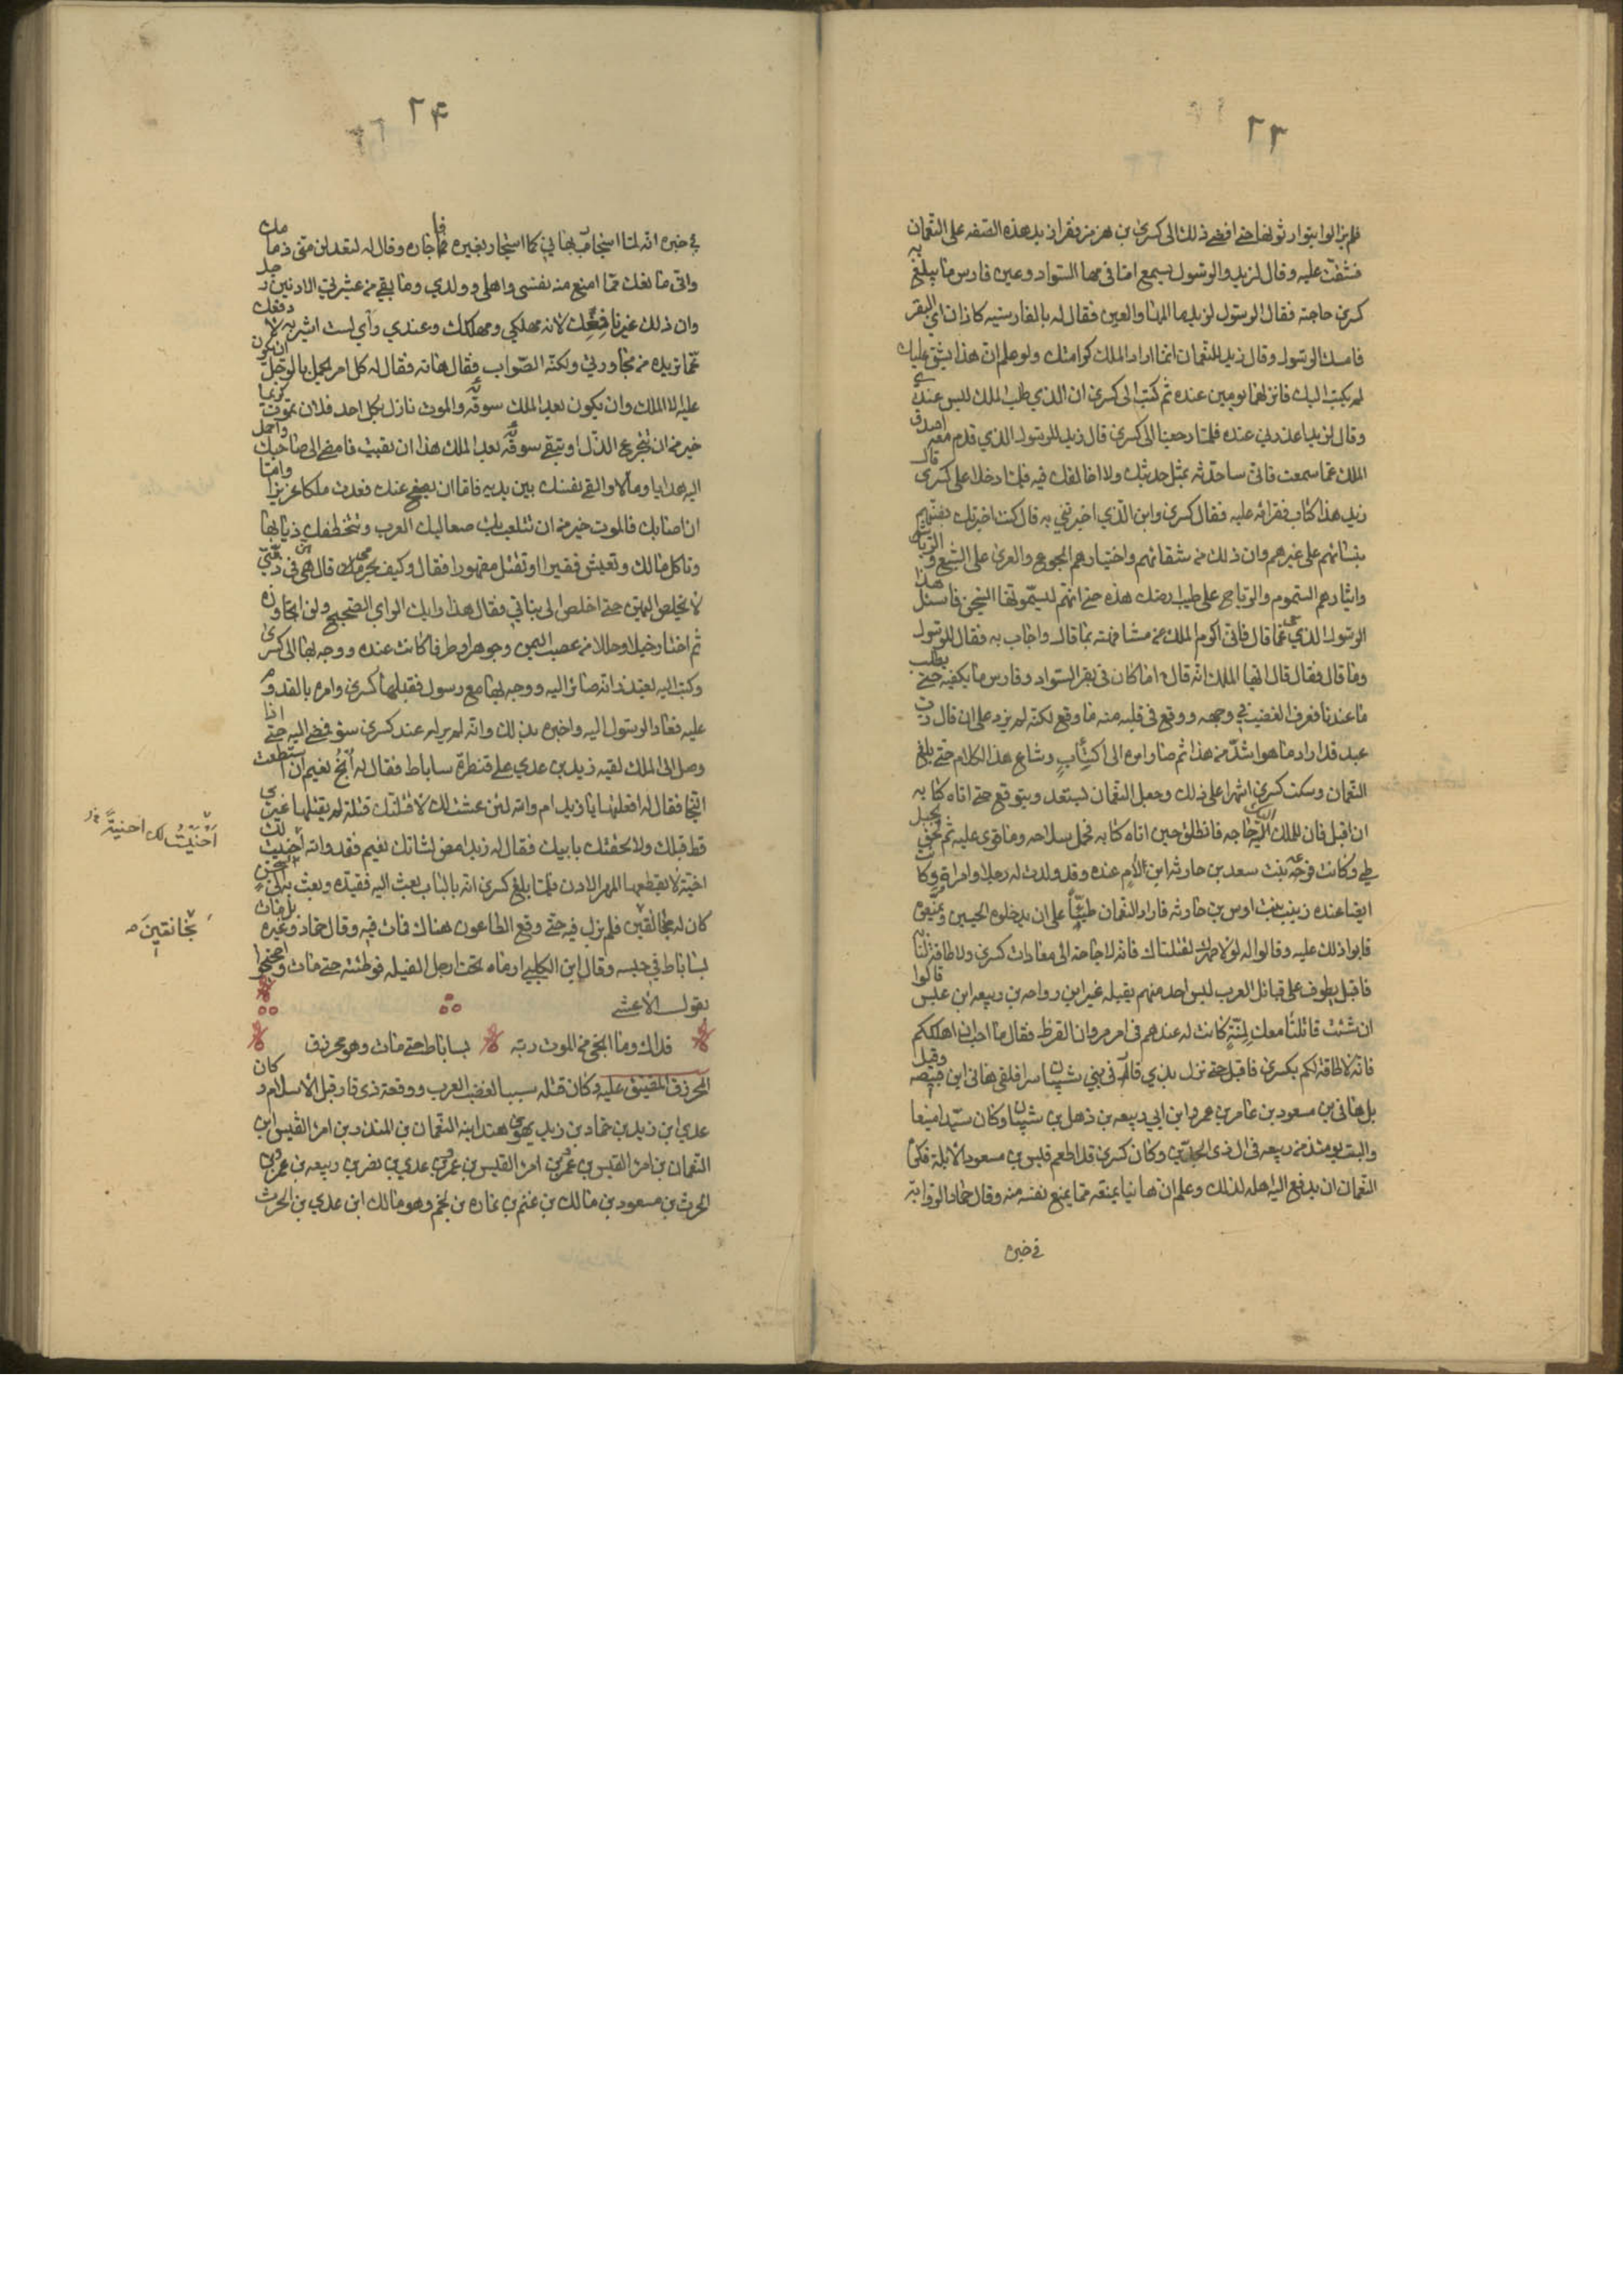 ٢٣
فلم يزالوا يتوارثونها حتى افضى ذلك الى كسرى بن هرمز فقرا زيد هذه الصفه على النعمان
فشقت عليه وقال لزيد والرسول يسمع اما في مها السواد وعين فارس ما يبلغ به
كسرى حاجته فقال الرسول لزيد ما المها والعين فقال له بالفارسيه كاوان اي البقر
فامسك الرسول وقال زيد للنعمان انما اراد الملك كرامتك ولو علم ان هذا يشق عليك
لم يكتب اليك فانزلهما يومين عنده ثم كتب الى كسرى ان الذي طلب الملك ليس عندي
وقال لزيد اعذرني عنده فلما رجعنا الى كسرى قال زيد للرسول الذي قدم معه اصدق
الملك عما سمعت فاني ساحدثه بمثل حديثك ولا اخالفك فيه فلما دخلا على كسرى قال
زيد هذا كتابه فقراه عليه فقال كسرى واين الذي اخبرتني به قال كنت اخبرتك بضنتهم
بنسائهم على غيرهم وان ذلك من شقائهم واختيارهم الجوع والعرى على الشبع والرياش
وايثارهم السموم والرياح على طيب ارضك هذه حتى انهم ليسمونها السجن فاسئل هذا
الرسول الذي معي عما قال فاني اكرم الملك عن مشافهته بما قال واجاب به فقال للرسول
وما قال فقال قال ايها الملك انه قال اما كان في بقر السواد وفارس ما يكفيه حتى يطلب
ما عندنا فعرف الغضب في وجهه ووقع في قلبه منه ما وقع لكنه لم يزد على ان قال رب
عبد قد اراد ما هو اشد من هذا ثم صار امره الى اكتئاب وشاع هذا الكلام حتى بلغ
النعمان وسكت كسرى اشهرا على ذلك وجعل النعمان يستعد ويتوقع حتى اتاه كتابه
ان اقبل فان للملك اليك حاجه فانطلق حين اتاه كتابه فحمل سلاحه وما قوي عليه ثم لحق بجبل
طي وكانت فرعه بنت سعد بن حارثه ابن لام عنده وقد ولدت له رجلا وامراة وكانت
ايضا عنده زينب بنت اوس بن حارثه فاراد النعمان طيئا على ان يدخلوه الجبلين ويمنعوه
فابوا ذلك عليه وقالوا له لولا صهرك لقتلناك فانه لا حاجة الى معادات كسرى ولا طاقة لنا به
فاقبل يطوف على قبائل العرب ليس احد منهم يقبله غير ابن رواحه بن ربيعه ابن عبس قالوا
ان شئت قاتلنا معك لمنة كانت له عندهم في امر مروان القرظ فقال ما احب اهلككم
فانه لا طاقة لكم بكسرى فاقبل حتى نزل بذي قار في بني شيبان سرا فلقي هاني ابن قبيصه وقيل
بل هاني بن مسعود بن عامر بن عمرو ابن ابي ربيعه بن ذهل بن شيبان وكان سيدا منيعا
والبيت يومئذ من ربيعه في ال ذي الجدين وكان كسرى قد اطعم قيس بن مسعود الابلة فكره
النعمان ان يدفع اليه اهله لذلك وعلم ان هانيا يمنعه مما يمنع نفسه منه وقال حماد الراوية
في خبره
٢٤
في خبره انه لما استجار بهاني كما استجار بغيره فاجاره وقال له لقد لزمني ذمامك
واني مانعك مما امنع منه نفسي واهلي وولدي وما بقي من عشيرتي الادنين رجل
وان ذلك غير نافعك لانه مهلكي ومهلكك وعندي رأي لست اشير به لادفعك
عما تريده من مجاورتي ولكنه الصواب فقال هاته فقال له كل امر يجمل بالرجل ان يكون
عليه الا الملك وان يكون بعد الملك سوقة والموت نازل بكل احد فلان تموت كريما
خير من ان تتجرع الذل او تبقى سوقة بعد الملك هذا ان بقيت فامض الى صاحبك واحمل
اليه هدايا ومالا والق نفسك بين يديه فاما ان يصفح عنك فعدت ملكا عزيزا واما
ان اصابك فالموت خير من ان تتلعب بك صعاليك العرب وتتخطفك ذيابها
وتاكل مالك وتعيش فقيرا او تقتل مقهورا فقال وكيف بحرمي قال هن في ذمتي
لا يخلص اليهن حتى اخلص الى بناتي فقال هذا رايك الراي الصحيح ولن اتجاوزه
ثم اختار خيلا وحللا من عصب اليمن وجوهرا وطرفا كانت عنده ووجه بها الى كسرى
وكتب اليه يعتذر انه صائر اليه ووجه بها مع رسوله فقبلها كسرى وامره بالقدوم
عليه فعاد الرسول اليه واخبره بذلك وانه لم ير له عند كسرى سوا فمضى اليه حتى اذا
وصل الى الملك لقيه زيد بن عدي على قنطرة ساباط فقال له انج نعيم ان استطعت
النجا فقال له افعلتها يا زيد ام والله لئن عشت لك لاقتلنك قتلة لم يقتلها عربي
قط قبلك ولالحقنك بابيك فقال له زيد امض لشانك نعيم فقد والله اخيت لك
اخية لا يقطعها المهر الارن فلما بلغ كسرى انه بالباب بعث اليه فقيده وبعث به الى سجن
كان له بخانقين فلم يزل فيه حتى وقع الطاعون هناك فمات فيه وقال حماد وغيره بل مات
بساباط في حبسه وقال ابن الكلبي ارماه تحت ارجل الفيله فوطئته حتى مات واحتجوا
بقول الاعشى
فذاك وما انجى من الموت ربه بساباط حتى مات وهو محرزق
المحرزق المضيق عليه وكان قتله سببا لغضب العرب ووقعة ذي قار قبل الاسلام وكان
عدي ابن زيد بن حماد بن زيد يهوى هندا ابنه النعمان بن المنذر بن امرا القيس ابن
النعمان بن امرا القيس بن عمرو بن امرا القيس بن عمرو بن عدي بن نصر بن ربيعه بن عمرو بن
الحرث بن مسعود بن مالك بن غنم بن نماره بن لخم وهو مالك ابن عدي بن الحرث
اخيت لك اخية
بخانقين